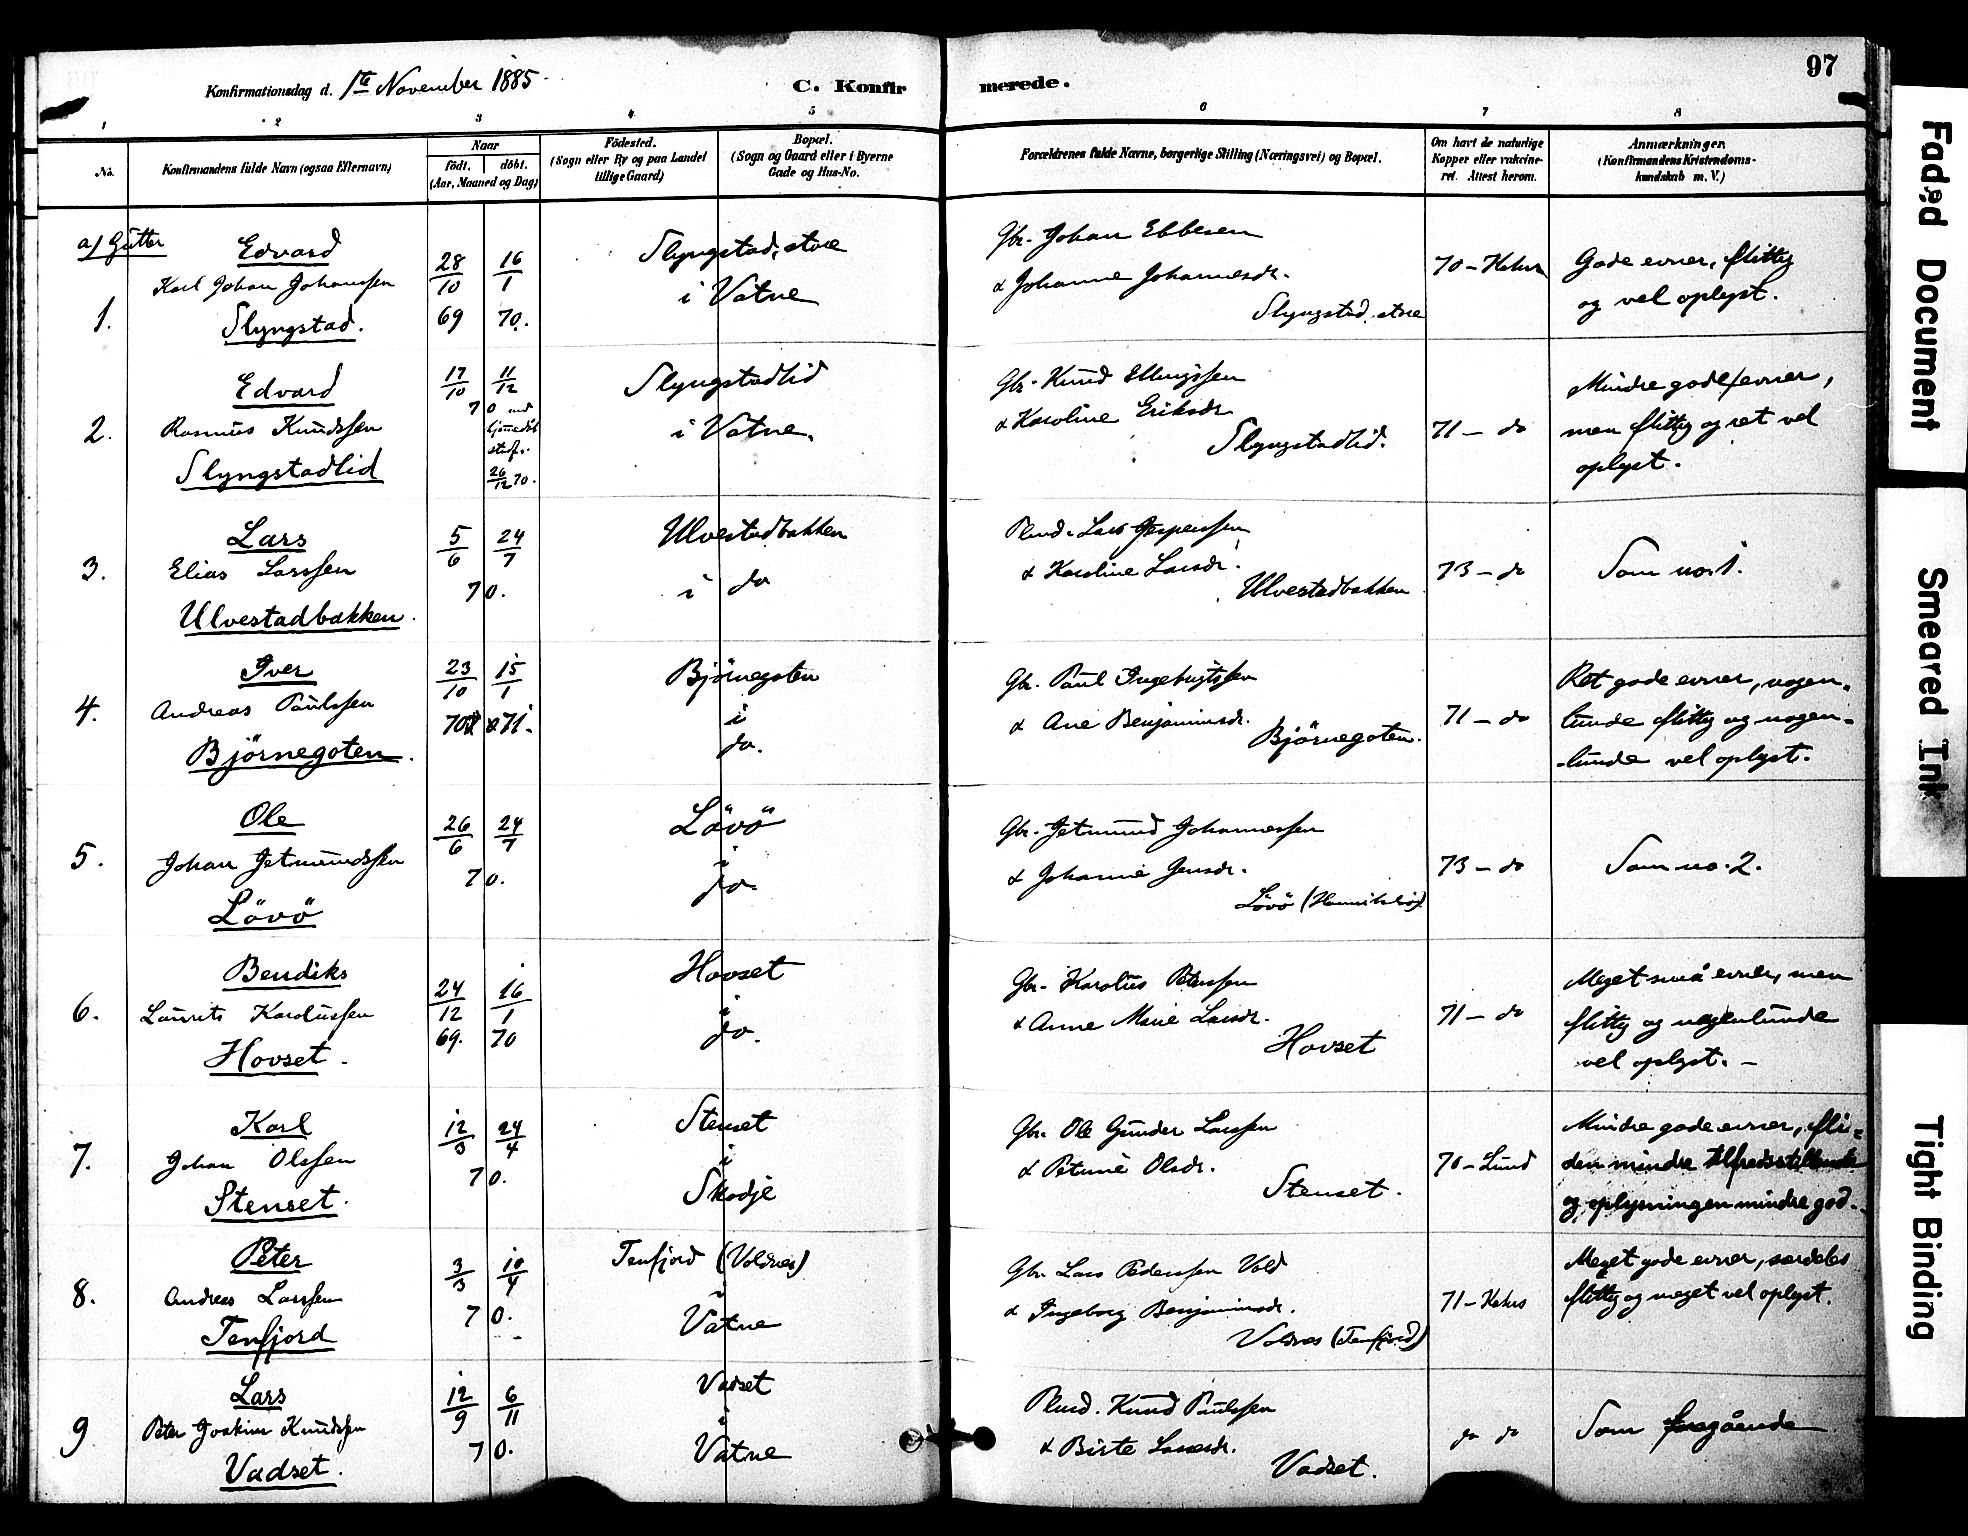 97
Konfirmationsdag d. 1ste November 1885
C. Konfirmerede.
1 2 3 4 5 6 7 8
No.
Konfirmandens fulde Navn (ogsaa Efternavn)
Naar
født. døbt.
(Aar, Maaned og Dag)
Fødested.
(Sogn eller By og paa Landet
tillige Gaard)
Bopæl.
(Sogn og Gaard eller i Byerne
Gade og Hus-No.
Forældrenes fulde Navne, borgerlige Stilling (Næringsvei) og Bopæl.
Om havt de naturlige
Kopper eller vakcine-
ret. Attest herom.
Anmærkninger.
(Konfirmandens Kristendoms-
kundskab m. V.)
a) Gutter
1.
Edvard
Karl Johan Johanssen
Slyngstad.
28/10 69
16/1 70.
Slyngstad, store
i Vatne
Gbr. Johan Ebbesen
& Johanne Johannesdr.
Slyngstad, store
70 - Kahrs
Gode evner, flittig
og vel oplyst.
2.
Edvard
Rasmus Knudssen
Slyngstadlid
17/10 11/12
70
hjemmedøbt
26/12 70.
Slyngstadlid
i Vatne.
Gbr. Knud Ellingssen
& Karoline Eriksdr.
Slyngstadlid.
71 - do
Mindre gode evner,
men flittig og ret vel
oplyst.
3.
Lars
Elias Larssen
Ulvestadbakken.
5/6 24/7
70.
Ulvestadbakken
i do
Plmd. Lars Jesperssen
& Karoline Larsdr.
Ulvestadbakken
73 - do
Som no. 1.
4.
Iver
Andreas Paulssen
Bjørnegoten.
23/10 70
15/1 71.
Bjørnegoten
i
do.
Gbr. Paul Ingebrigtssen
& Ane Benjaminsdr.
Bjørnegoten.
71 - do
Ret gode evner, nogen-
lunde flittig og nogen-
lunde vel oplyst.
5.
Ole
Johan Jetmundssen
Løvø
26/6 24/7
70.
Løvø
i
do.
Gbr. Jetmund Johannessen
& Johanne Jensdr.
Løvø
73 - do
Som no. 2.
6.
Bendiks
Laurits Karolussen
Hovset.
24/12 69.
16/1 70
Hovset
i
do.
Gbr. Karolus Peterssen
& Anne Marie Larsdr.
Hovset
71 - do
Meget små evner, men
flittig og nogenlunde
vel oplyst. -
7.
Karl
Johan Olssen
Stenset.
12/3 24/4
70.
Stenset
i
Skodje
Gbr. Ole Gunder Larssen
& Petrine Olsdr.
Stenset.
70 - Lund
Mindre gode evner, fli-
den mindre tilfredsstillende
og oplysningen mindre god.
8.
Peter
Andreas Larssen
Tenfjord
3/3 10/4
70.
Tenfjord (Voldnes)
i
Vatne
Gbr. Lars Pederssen Vold
& Ingeborg Benjaminsdr.
Voldnes (Tenfjord)
71 - Kahrs
Meget gode evner, særdeles
flittig og meget vel oplyst.
9
Lars
Peter Joakim Knudssen
Vadset.
12/9 6/11
70.
Vadset
i
Vatne
Plmd. Knud Paulssen
& Birte Larsdr.
Vadset.
do do
Som foregående
Faded Document
Smeared Ink
Tight Binding